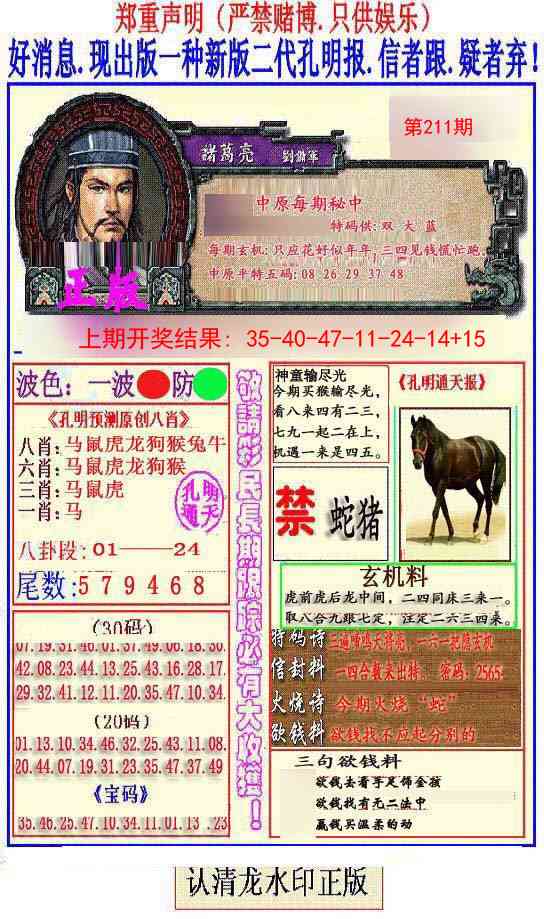 郑重声明（严禁赌博.只供娱乐）
好消息.现出版一种新版二代孔明报.信者跟.疑者弃!
第211期
諸葛亮 劉備軍
中原每期秘中
特码供:双 大 蓝
每期玄机:只应花好似年年,三四见钱慌忙跑.
中原平特五码:08 26 29 37 48
正版
上期开奖结果: 35-40-47-11-24-14+15
波色: 一波 防
《孔明预测原创八肖》
八肖:马鼠虎龙狗猴兔牛
六肖:马鼠虎龙狗猴
三肖:马鼠虎
一肖:马
孔明
通天
八卦段:01——24
尾数:579468
(30码)
07.19.31.46.01.37.49.06.18.30.
42.08.23.44.13.25.43.16.28.17.
29.32.41.12.11.20.35.47.10.34.
(20码)
01.13.10.34.46.32.25.43.11.08.
20.44.07.19.31.23.35.47.37.49
《宝码》
35.46.25.47.10.34.11.01.13 .23
敬請彩民長期跟踪必有大收獲!
神童输尽光
今期买猴输尽光，
看八来四有二三，
七九一起二在上，
机遇一来是四五。
《孔明通天报》
禁 蛇猪
玄机料
虎前虎后龙中间，二四同床三来一。
取八合九跟七定，注定二六三四来。
特码诗
信封料 一四合数未出特. 密码: 2565.
火烧诗 今期火烧“蛇”
欲钱料 欲钱找不应起分别的
三句欲钱料
欲钱去看手足饰金孩
欲钱找有无二法中
赢钱买温柔的动
认清龙水印正版